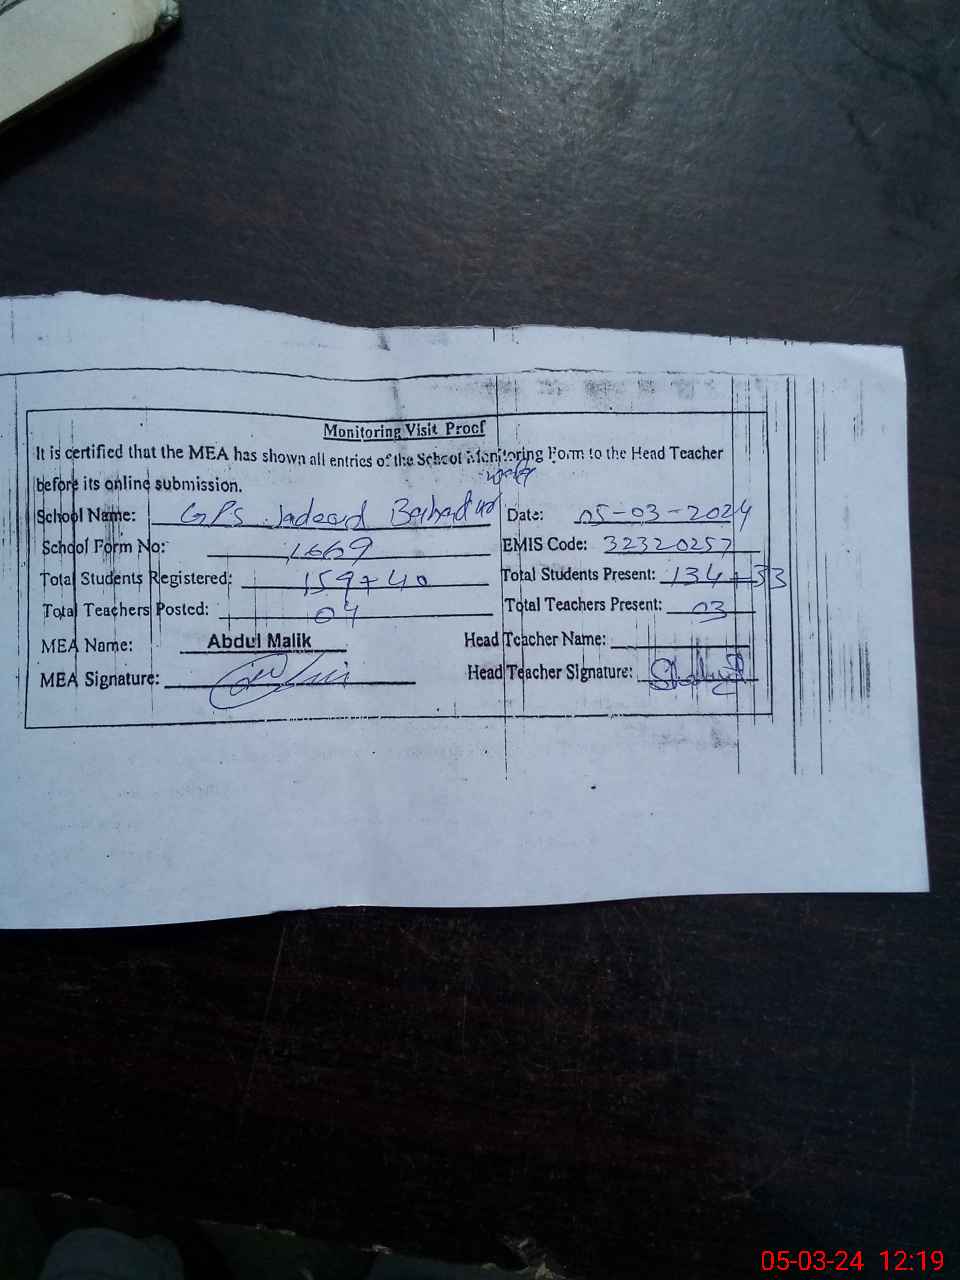 Monitoring Visit Proof
It is certified that the MEA has shown all entries of the School Monitoring Form to the Head Teacher
before its online submission.
School Name: GPS Jadeed Bahadur Date: 05-03-2024
School Form No: 1669 EMIS Code: 32320257
Total Students Registered: 159+40 Total Students Present: 134+33
Total Teachers Posted: 04 Total Teachers Present: 03
MEA Name: Abdul Malik Head Teacher Name:
MEA Signature: Head Teacher Signature:
05-03-24 12:19